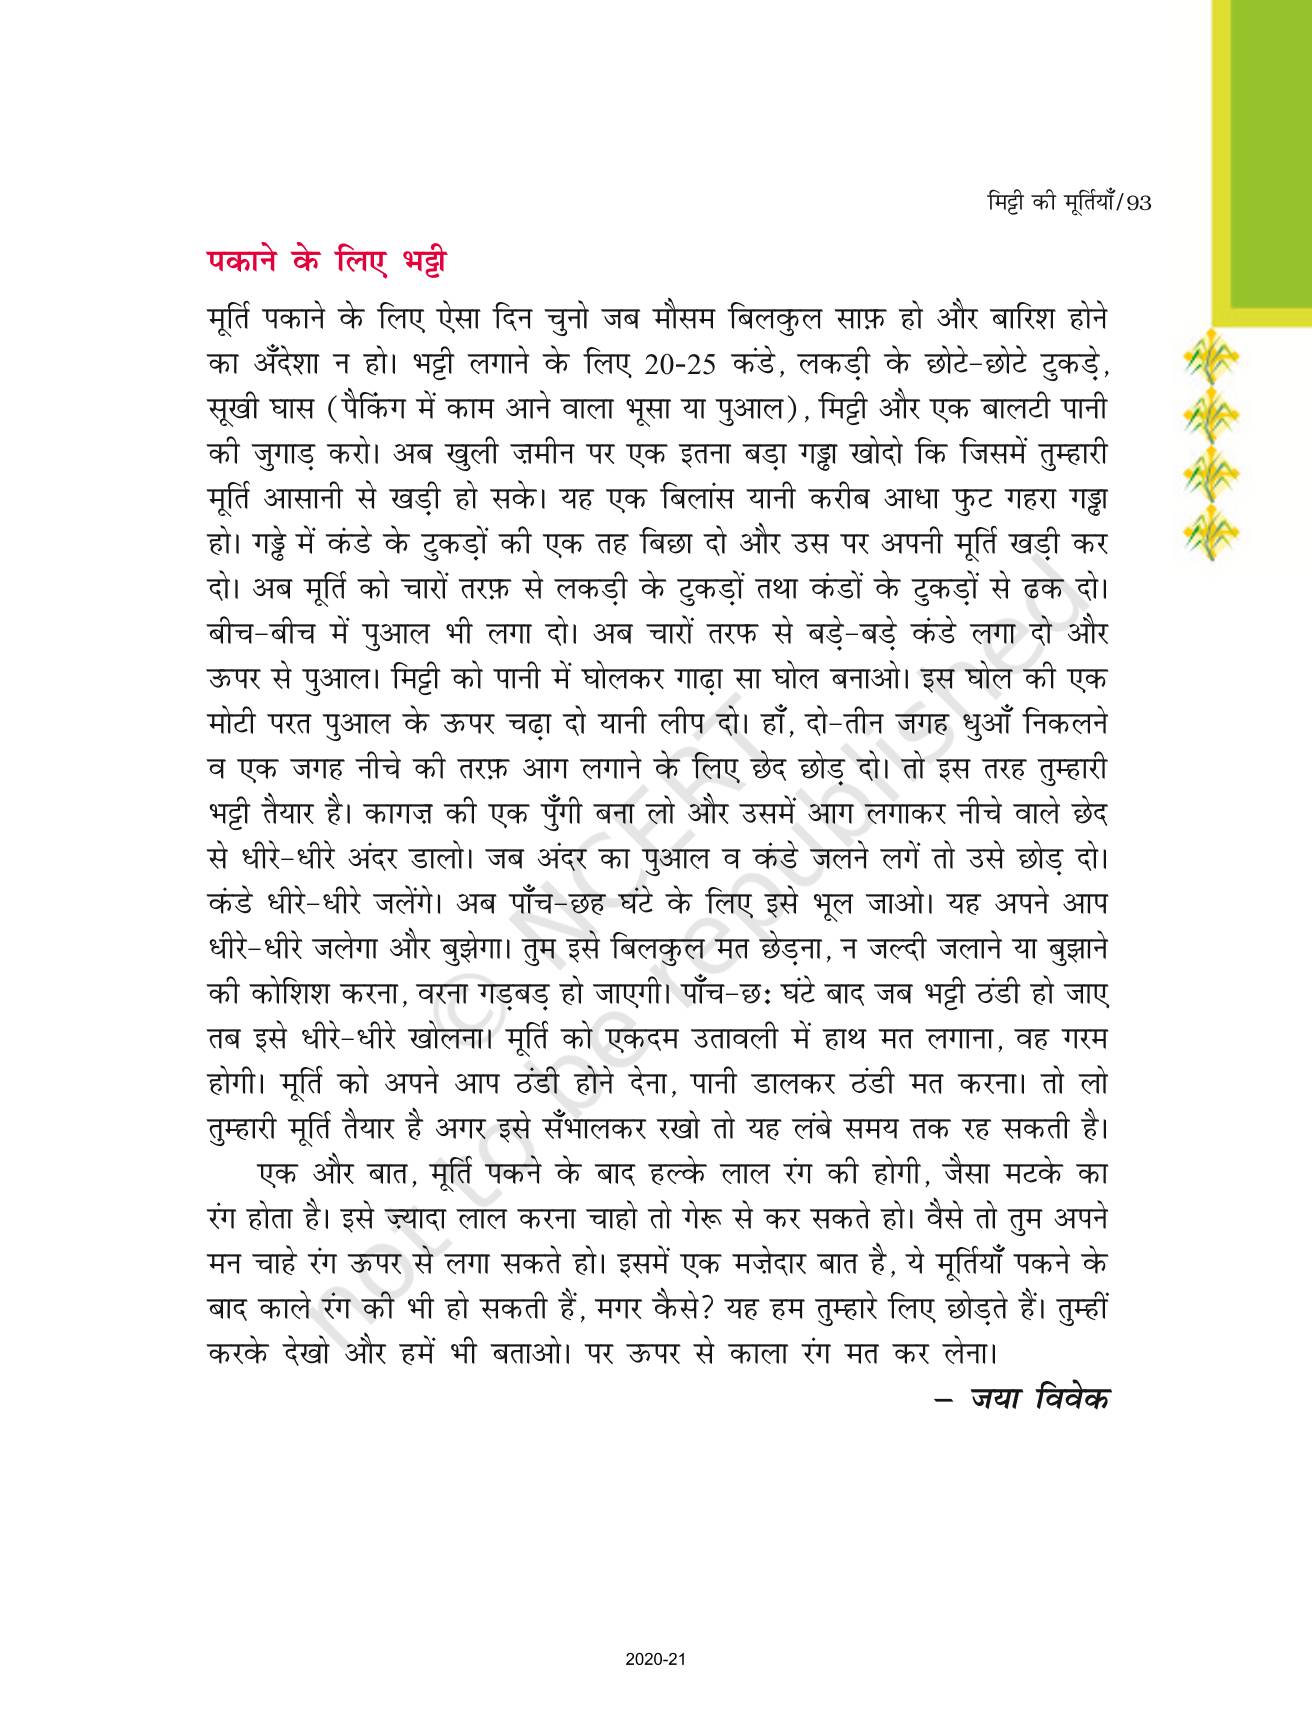 मिट्टी की मूर्तियाँ/93
पकाने के लिए भट्टी
मूर्ति पकाने के लिए ऐसा दिन चुनो जब मौसम बिलकुल साफ़ हो और बारिश होने
का अँदेशा न हो। भट्टी लगाने के लिए 20-25 कंडे, लकड़ी के छोटे-छोटे टुकड़े,
सूखी घास (पैकिंग में काम आने वाला भूसा या पुआल), मिट्टी और एक बालटी पानी
की जुगाड़ करो। अब खुली ज़मीन पर एक इतना बड़ा गड्ढा खोदो कि जिसमें तुम्हारी
मूर्ति आसानी से खड़ी हो सके। यह एक बिलांस यानी करीब आधा फुट गहरा गड्ढा
हो। गड्ढे में कंडे के टुकड़ों की एक तह बिछा दो और उस पर अपनी मूर्ति खड़ी कर
दो। अब मूर्ति को चारों तरफ़ से लकड़ी के टुकड़ों तथा कंडों के टुकड़ों से ढक दो।
बीच-बीच में पुआल भी लगा दो। अब चारों तरफ से बड़े-बड़े कंडे लगा दो और
ऊपर से पुआल। मिट्टी को पानी में घोलकर गाढ़ा सा घोल बनाओ। इस घोल की एक
मोटी परत पुआल के ऊपर चढ़ा दो यानी लीप दो। हाँ, दो-तीन जगह धुआँ निकलने
व एक जगह नीचे की तरफ़ आग लगाने के लिए छेद छोड़ दो। तो इस तरह तुम्हारी
भट्टी तैयार है। कागज़ की एक पुँगी बना लो और उसमें आग लगाकर नीचे वाले छेद
से धीरे-धीरे अंदर डालो। जब अंदर का पुआल व कंडे जलने लगें तो उसे छोड़ दो।
कंडे धीरे-धीरे जलेंगे। अब पाँच-छह घंटे के लिए इसे भूल जाओ। यह अपने आप
धीरे-धीरे जलेगा और बुझेगा। तुम इसे बिलकुल मत छेड़ना, न जल्दी जलाने या बुझाने
की कोशिश करना, वरना गड़बड़ हो जाएगी। पाँच-छः घंटे बाद जब भट्टी ठंडी हो जाए
तब इसे धीरे-धीरे खोलना। मूर्ति को एकदम उतावली में हाथ मत लगाना, वह गरम
होगी। मूर्ति को अपने आप ठंडी होने देना, पानी डालकर ठंडी मत करना। तो लो
तुम्हारी मूर्ति तैयार है अगर इसे सँभालकर रखो तो यह लंबे समय तक रह सकती है।
एक और बात, मूर्ति पकने के बाद हल्के लाल रंग की होगी, जैसा मटके का
रंग होता है। इसे ज़्यादा लाल करना चाहो तो गेरू से कर सकते हो। वैसे तो तुम अपने
मन चाहे रंग ऊपर से लगा सकते हो। इसमें एक मज़ेदार बात है, ये मूर्तियाँ पकने के
बाद काले रंग की भी हो सकती हैं, मगर कैसे? यह हम तुम्हारे लिए छोड़ते हैं। तुम्हीं
करके देखो और हमें भी बताओ। पर ऊपर से काला रंग मत कर लेना।
– जया विवेक
© NCERT
not to be republished
2020-21